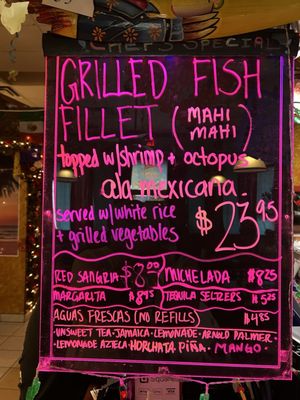 CHEF'S SPECIAL
GRILLED FISH
FILLET (MAHI MAHI)
topped w/shrimp + octopus
a la mexicana
served w/white rice $23.95
+ grilled vegetables
RED SANGRIA $8.00 MICHELADA $8.25
MARGARITA $8.95 TEQUILA SELTZERS $5.25
AGUAS FRESCAS (NO REFILLS) $4.85
UNSWEET TEA · JAMAICA · LEMONADE · ARNOLD PALMER
· LEMONADE AZTECA · HORCHATA PIÑA · MANGO ·
Square